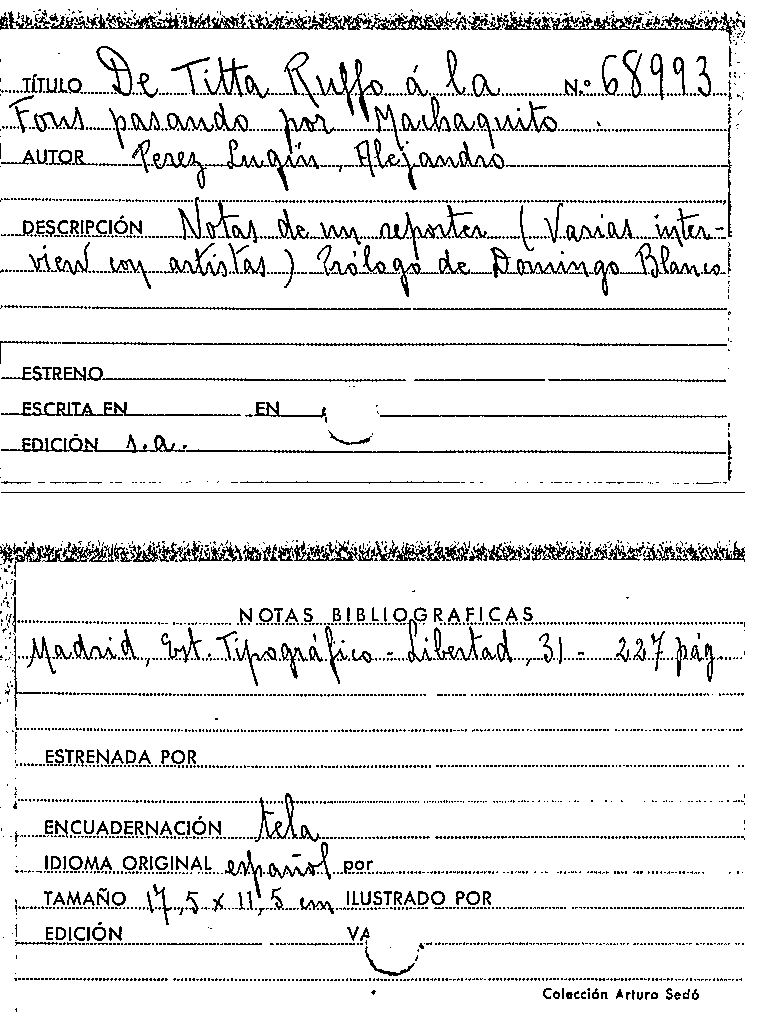 TÍTULO De Titta Ruffo á la N.º 68993
Fons pasando por Machaquito.
AUTOR Perez Lugín, Alejandro
DESCRIPCIÓN Notas de un reporter (Varias inter-
view con artistas) Prólogo de Domingo Blanco
ESTRENO
ESCRITA EN EN
EDICIÓN s.a.
NOTAS BIBLIOGRAFICAS
Madrid, Est. Tipográfico - Libertad, 31 - 227 pág
ESTRENADA POR
ENCUADERNACIÓN tela
IDIOMA ORIGINAL español por
TAMAÑO 17,5 x 11,5 cm ILUSTRADO POR
EDICIÓN VA
Colección Arturo Sedó